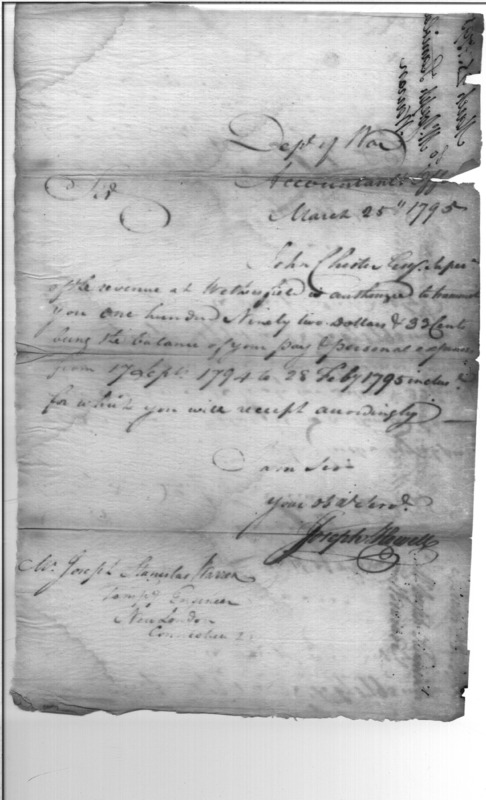 Dept of War
Accountants Off
March 25" 1795
Sir
John Chester Esqr. Super
of the revenue at Wethersfield is authorized to transmit
you one hundred Ninety two Dollars & 33 Cent
being the balance of your pay & personal expences
from 17 Sept. 1794 to 28 Feby 1795 inclus.
for which you will receipt accordingly
I am Sir
your Obdt Servt.
Joseph Howell
Mr. Joseph Stanislas
Tempy Engineer
New London
Connecticut